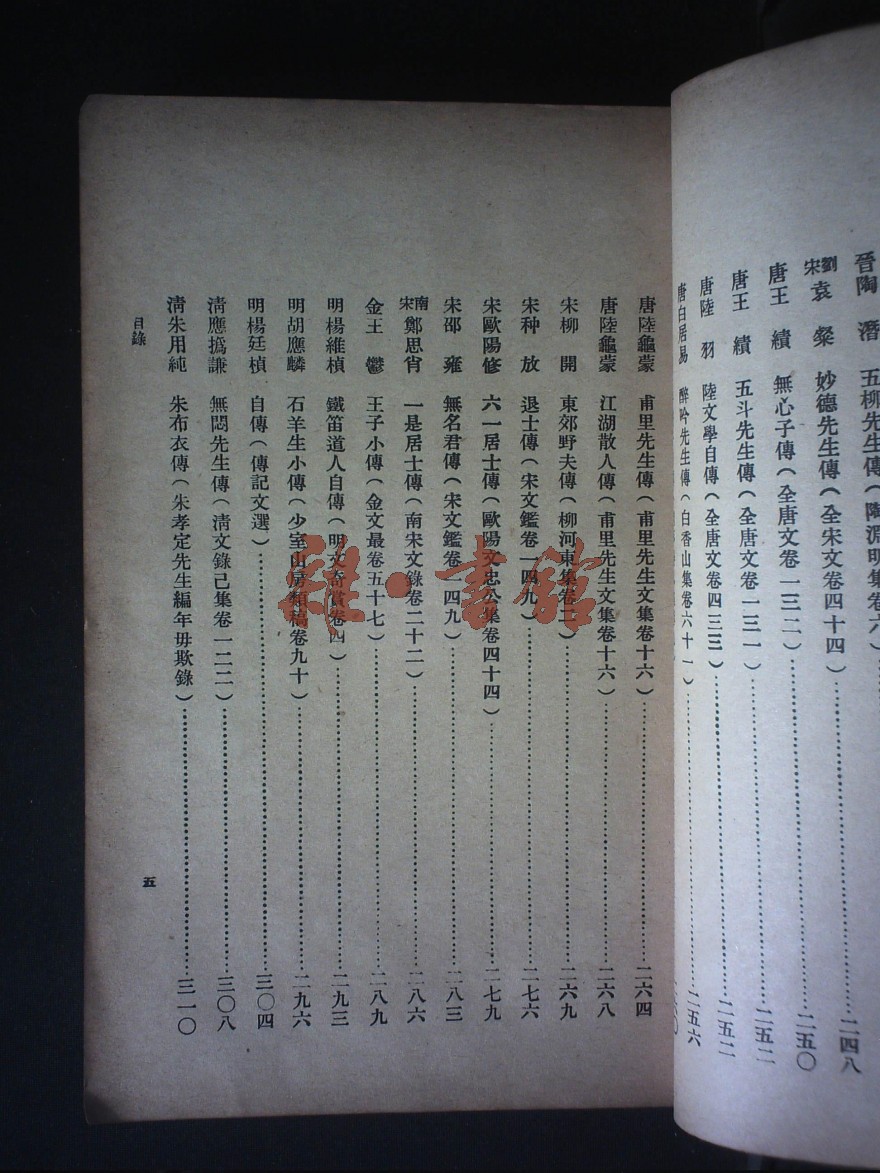 晉陶 潛 五柳先生傳(陶淵明集卷六)……二四八
劉宋袁 粲 妙德先生傳(全宋文卷四十四)……二五〇
唐王 績 無心子傳(全唐文卷一三二)……二五二
唐王 績 五斗先生傳(全唐文卷一三一)……二五二
唐陸 羽 陸文學自傳(全唐文卷四三三)……二五六
唐白居易 醉吟先生傳(白香山集卷六十一)……二六〇
唐陸龜蒙 甫里先生傳(甫里先生文集卷十六)……二六四
唐陸龜蒙 江湖散人傳(甫里先生文集卷十六)……二六八
宋柳 開 東郊野夫傳(柳河東集卷二)……二六九
宋种 放 退士傳(宋文鑑卷一四九)……二七六
宋歐陽修 六一居士傳(歐陽文忠公集卷四十四)……二七九
宋邵 雍 無名君傳(宋文鑑卷一四九)……二八三
南宋鄭思肖 一是居士傳(南宋文錄卷二十二)……二八六
金王 鬱 王子小傳(金文最卷五十七)……二八九
明楊維楨 鐵笛道人自傳(明文奇賞卷四)……二九三
明胡應麟 石羊生小傳(少室山房類稿卷九十)……二九六
明楊廷楨 自傳(傳記文選)……三〇四
清應撝謙 無悶先生傳(清文錄己集卷一二二)……三〇八
清朱用純 朱布衣傳(朱孝定先生編年毋欺錄)……三一〇
目錄
五
雜·書館